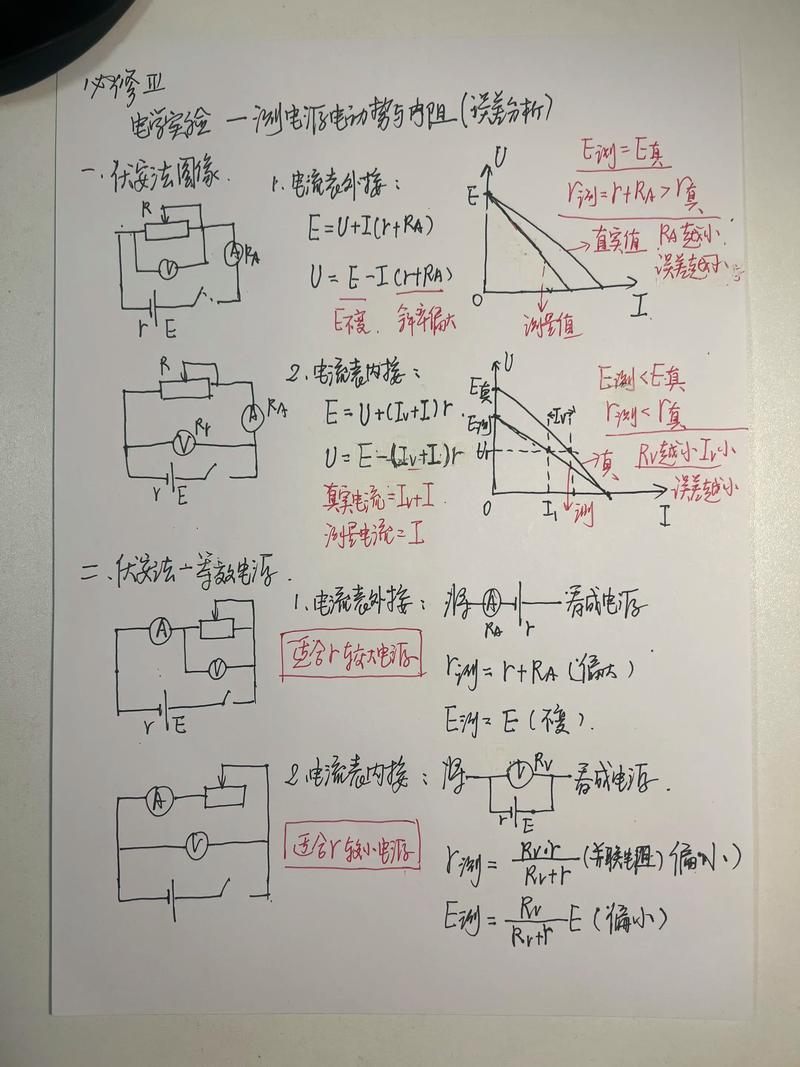 必修Ⅲ
电学实验 — 测电源电动势与内阻(误差分析)
一、伏安法图像.
R
V
A
RA
r
E
1. 电流表外接:
E=U+I(r+RA)
U=E-I(r+RA)
E不变. 斜率偏大
U
E
O
I
真实值
测量值
E测=E真
r测=r+RA>r真
RA越小
误差越小
R
A
RA
V
RV
r
E
2. 电流表内接:
E=U+(IV+I)r.
U=E-(IV+I)r
真实电流=IV+I
测量电流=I
U
E真
E测
U1
IV
O
I1
I
真
测
E测<E真
r测<r真
RV越小IV小
误差越小
二、伏安法—等效电源.
A
V
r
E
1. 电流表外接: 将
A
RA
r
看成电源
适合r较大电源
r测=r+RA(偏大)
E测=E(不变).
A
V
2. 电流表内接: 将
V
RV
r
E
看成电源.
适合r较小电源
r测=RV·r/RV+r (并联电阻)(偏小)
E测=RV/RV+r E (偏小)